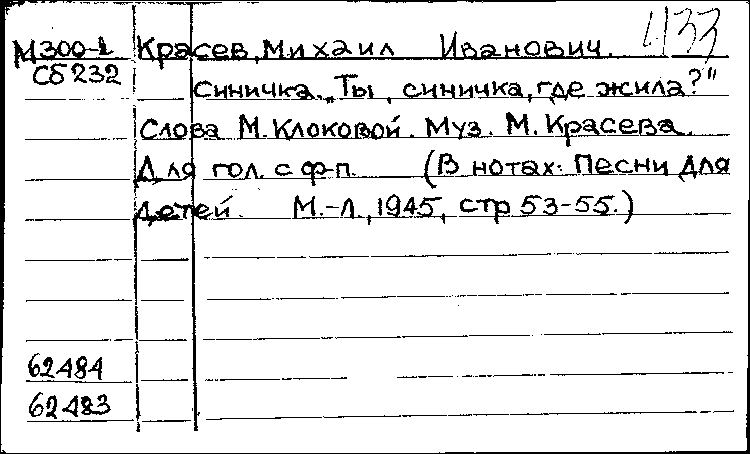 М300-2 Красев, Михаил Иванович. 433
Сб 232
Синичка. „Ты, синичка, где жила?"
Слова М. Клоковой. Муз. М. Красева.
Для гол. с ф-п. (В нотах: Песни для
детей. М.-Л., 1945, стр 53-55.)
62484
62483